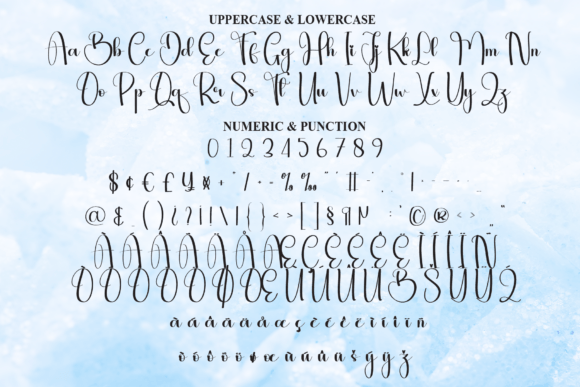 UPPERCASE & LOWERCASE
Aa Bb Cc Dd Ee Ff Gg Hh Ii Jj Kk Ll Mm Nn
Oo Pp Qq Rr Ss Tt Uu Vv Ww Xx Yy Zz
NUMERIC & PUNCTION
0 1 2 3 4 5 6 7 8 9
$ ¢ € £ ¥ ¤ + / ÷ - % ‰
@ & ( ) ¿ ? ¡ ! | \ | { } < > [ ] § ¶ µ : © ® < >
À Á Â Ã Ä Å Æ Ç È É Ê Ë Ì Í Î Ï Ñ
Ò Ó Ô Õ Ö Ø Œ Ù Ú Û Ü Š Ÿ Ž
à á â ã ä å æ ç è é ê ë ì í î ï ñ
ò ó ô õ ö ø œ ù ú û ü š ý ÿ ž